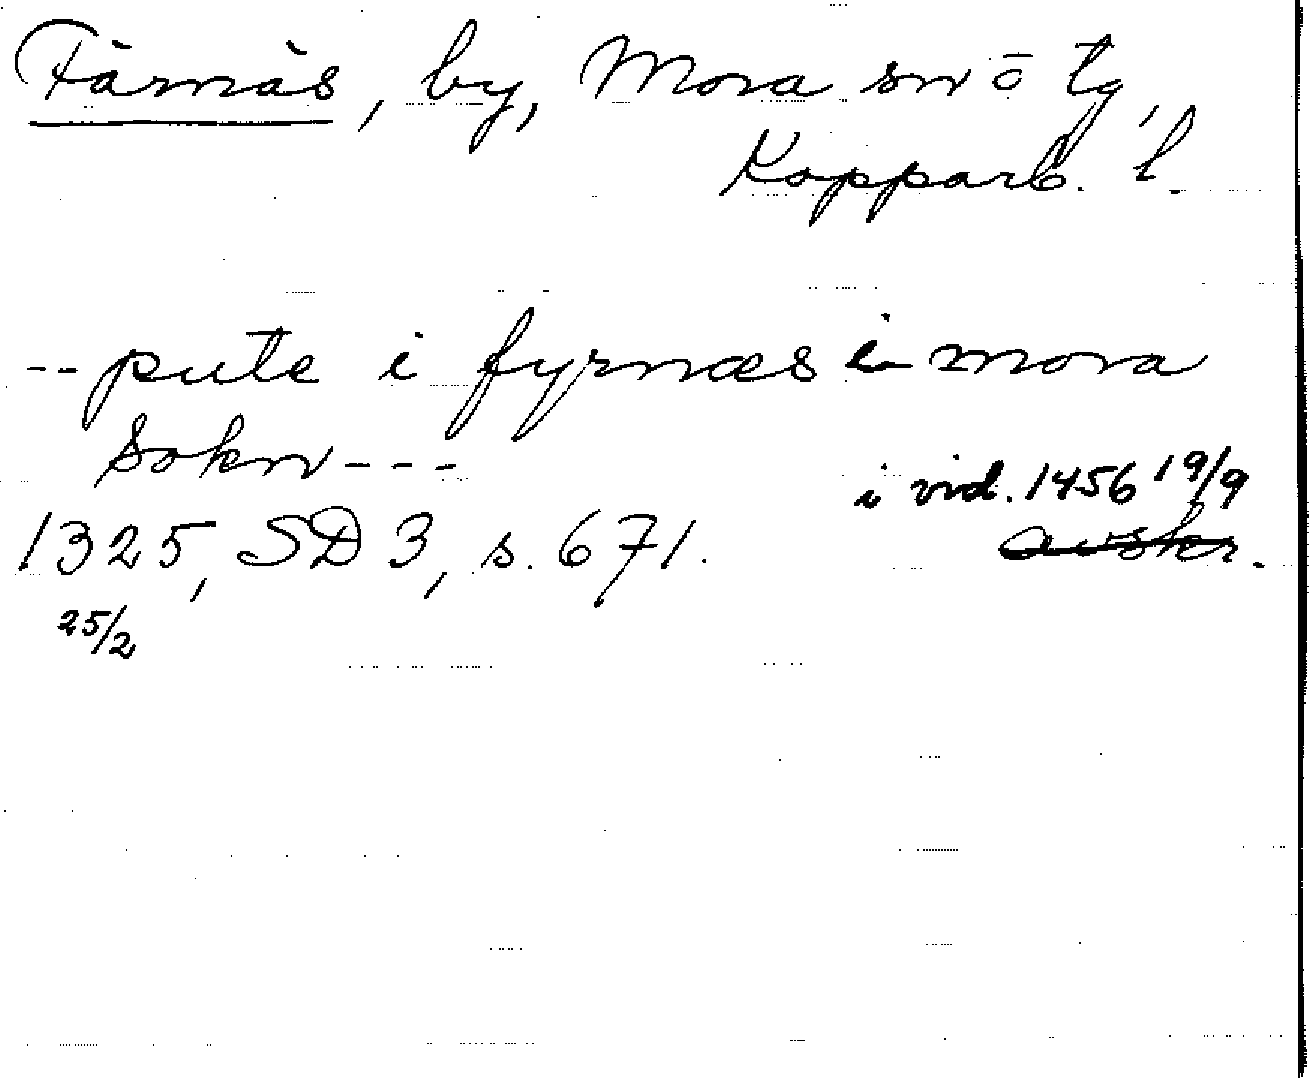 Färnäs, by, Mora sn o tg,
Kopparb. l.
-- pute i fyrnæs i mora
Sokn ---
i vid. 1456 19/9
1325, SD 3, s. 671.
avskr.
25/2